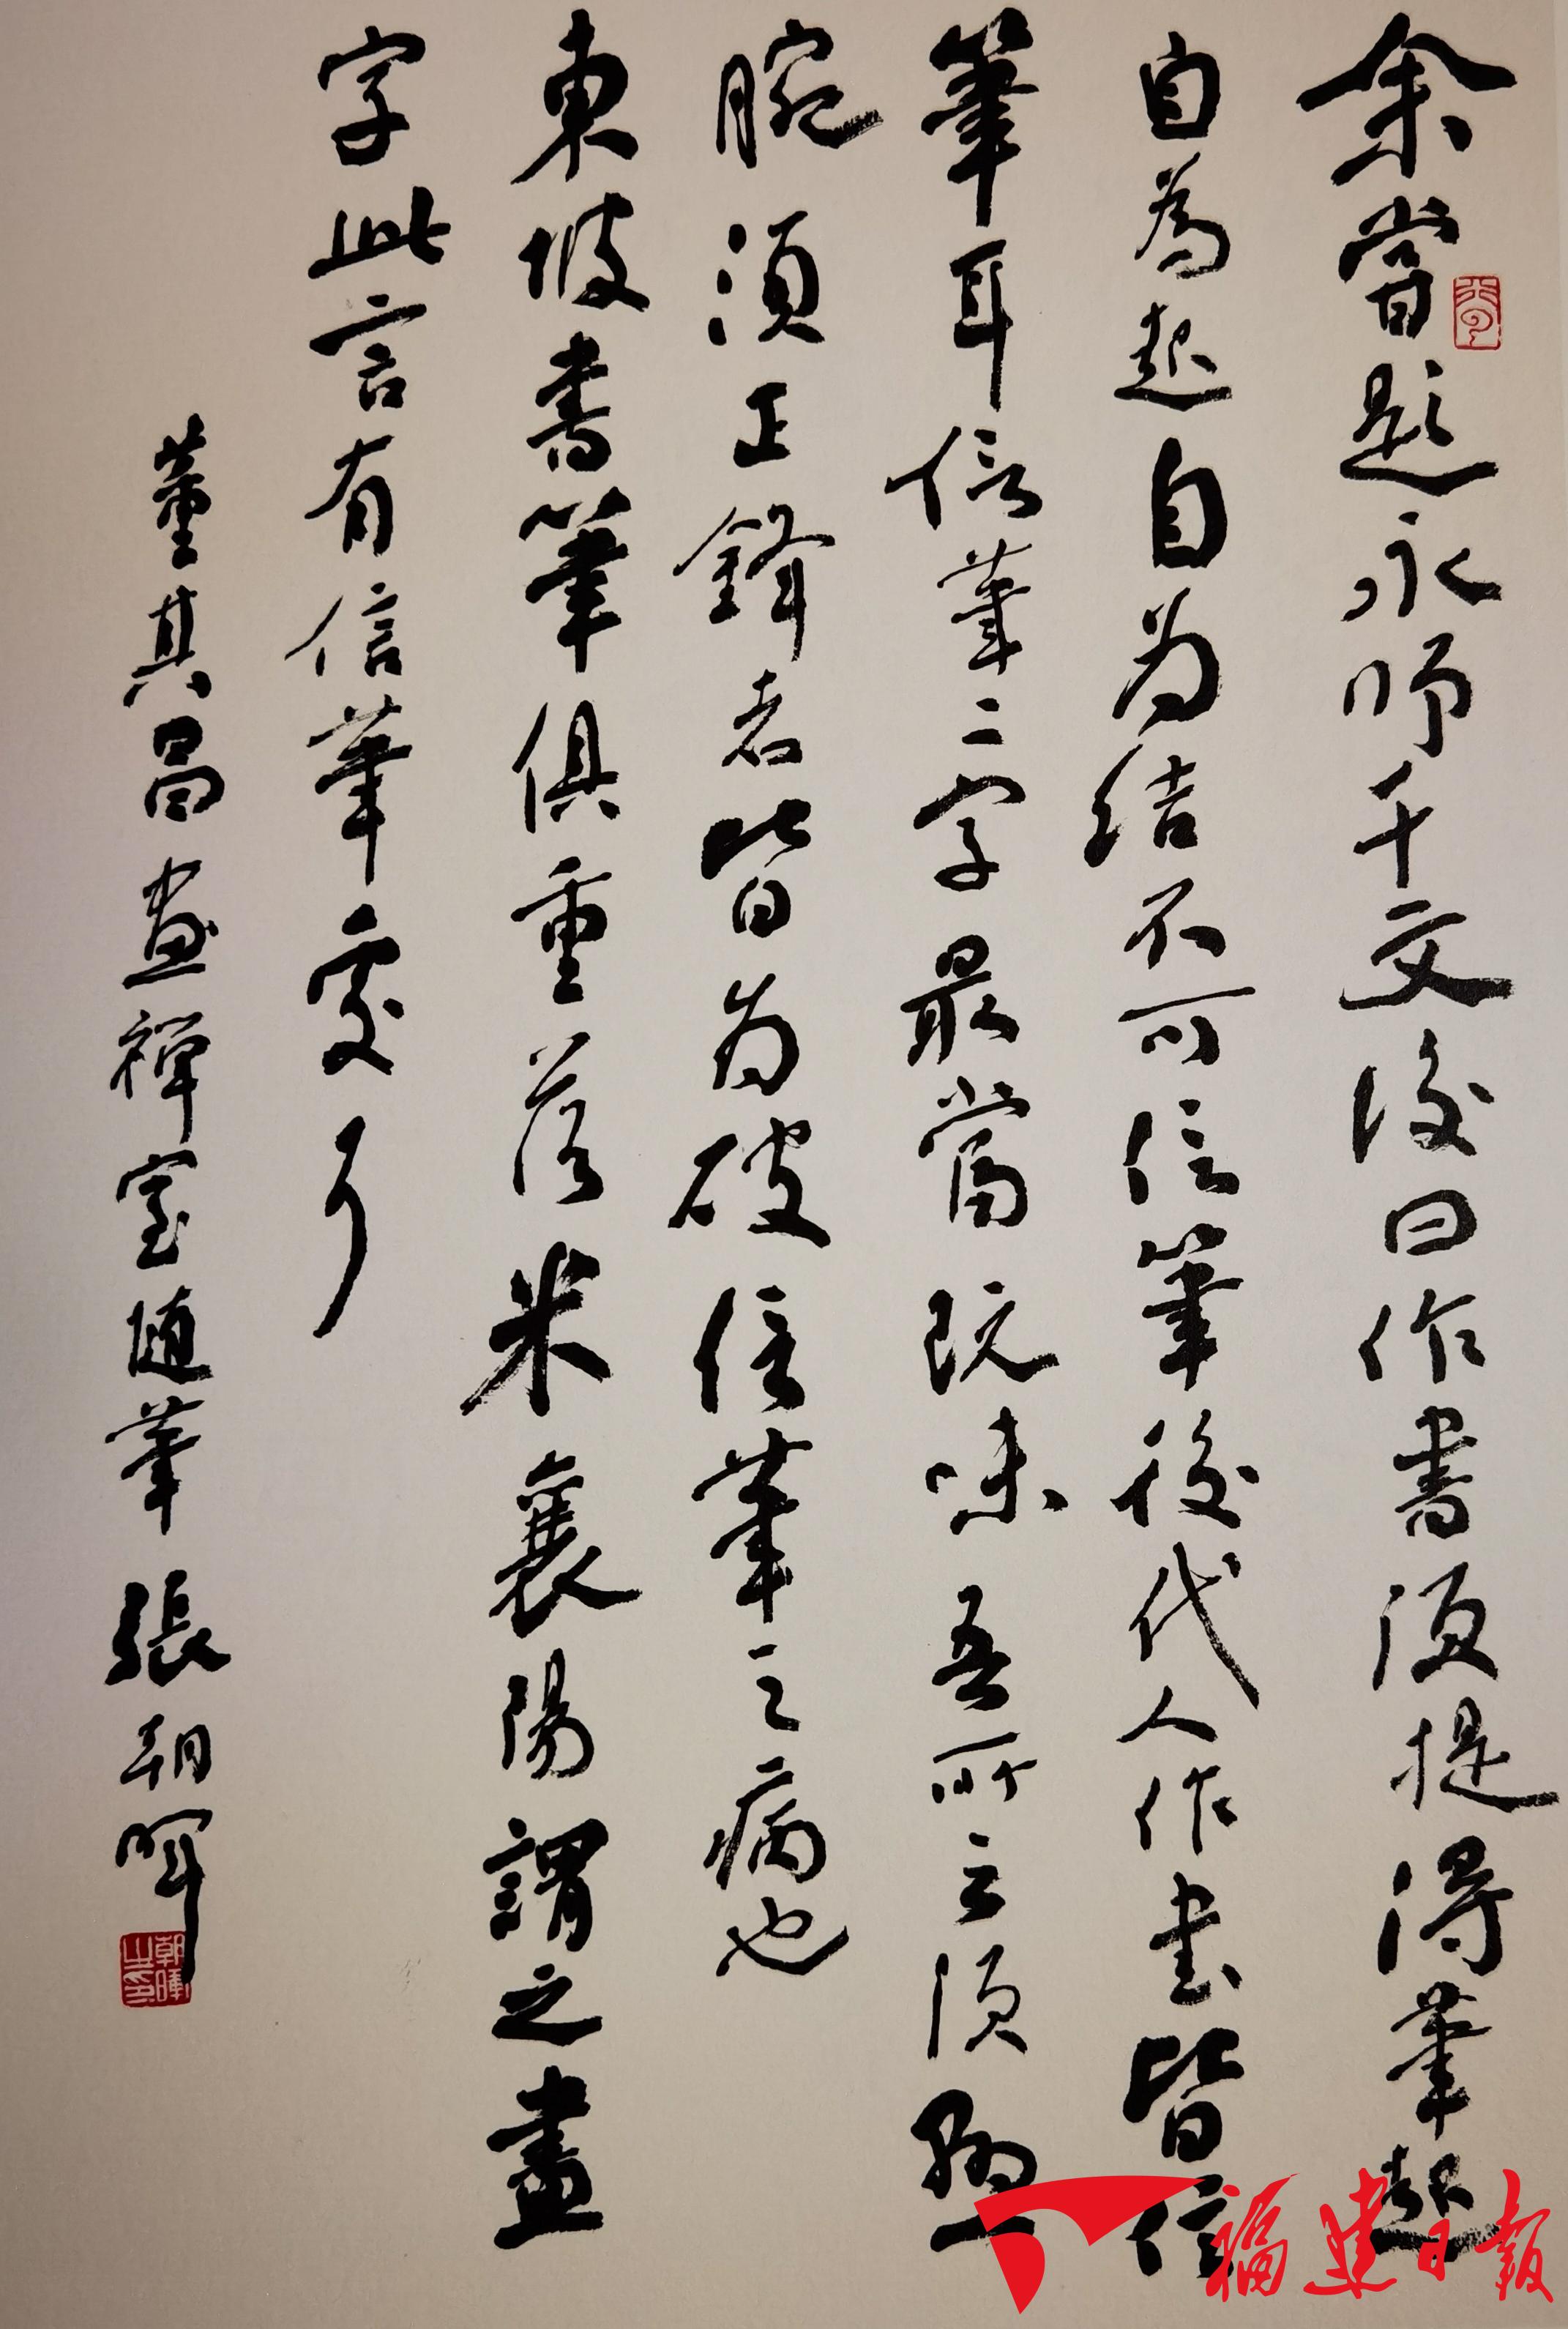 余嘗題永師千文後曰作書須提得筆起
自為起自为结不可信筆後代人作書皆信
筆耳信筆二字最當玩味吾所云須懸
腕須正鋒者皆为破信筆之病也
東坡書筆俱重落米襄陽謂之畫
字此言有信筆處耳
董其昌畫禪室随筆 張朝暉
朝暉之印
福建日報